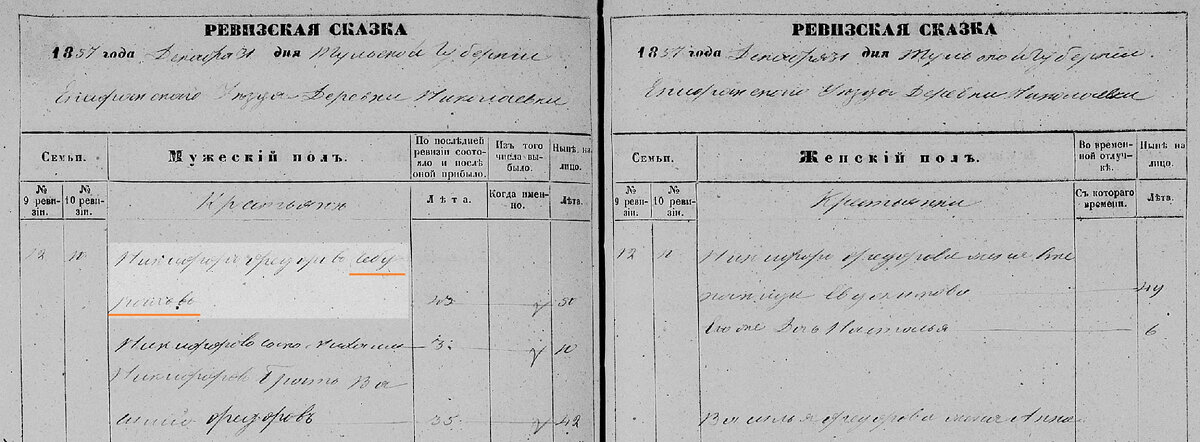 РЕВИЗСКАЯ СКАЗКА
1857 года Декабря 31 дня Тульской Губерніи
Епифанского Уезда Деревни Николаевки
Семьи.
Мужескій полъ.
По послѣдней ревизіи состояло и послѣ оной прибыло.
Изъ того числа выбыло.
Нынѣ на лицо.
№ 9 ревизіи.
№ 10 ревизіи.
Крестьяне
Лѣта.
Когда именно.
Лѣта.
12
Никифоръ Федоровъ
43 50
Никифоровъ сынъ
3 10
Никифоровъ братъ Ва
силий Федоровъ 35 42
РЕВИЗСКАЯ СКАЗКА
1857 года Декабря 31 дня Тульской Губерніи
Епифанского Уезда Деревни Николаевки
Семьи.
Женскій полъ.
Во временной отлучкѣ.
Нынѣ на лицо.
№ 9 ревизіи.
№ 10 ревизіи.
Крестьянки
Съ котораго времени.
Лѣта.
12
Никифора Федорова жена
49
Его же Дочь Настасья 6
Василья Федорова жена Анна